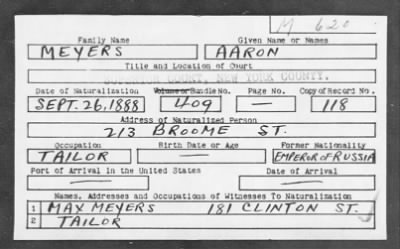 M 620
Family Name Given Name or Names
MEYERS AARON
Title and Location of Court
SUPERIOR COURT, NEW YORK COUNTY.
Date of Naturalization Volume or Bundle No. Page No. Copy of Record No.
SEPT. 26, 1888 409 — 118
Address of Naturalized Person
213 BROOME ST.
Occupation Birth Date or Age Former Nationality
TAILOR — EMPEROR OF RUSSIA
Port of Arrival in the United States Date of Arrival
— —
Names, Addresses and Occupations of Witnesses To Naturalization
1 MAX MEYERS 181 CLINTON ST.
2 TAILOR